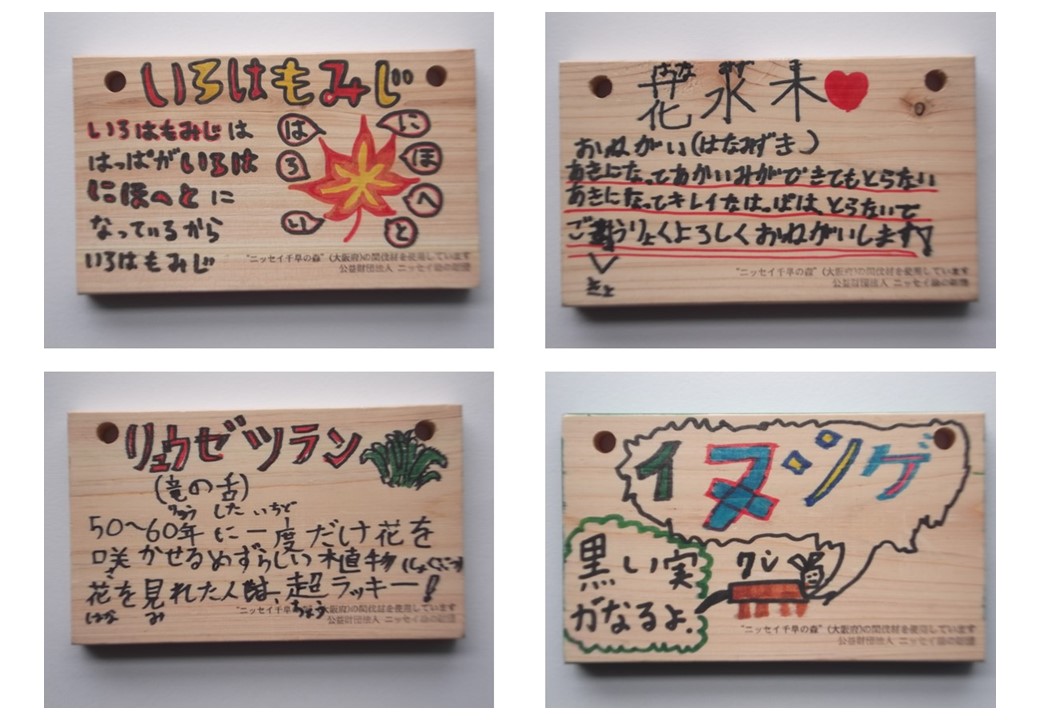 いろはもみじ
いろはもみじは
はっぱがいろは
にほへとに
なっているから
いろはもみじ
は
に
ろ
ほ
へ
い
と
"ニッセイ千早の森"(大阪府)の間伐材を使用しています
公益財団法人 ニッセイ緑の財団
はな みず き
花 水 木
おねがい(はなみずき)
あきになってあかいみができてもとらない
あきになってキレイなはっぱは、とらないで
ごうりょくよろしくおねがいします!
きょ
"ニッセイ千早の森"(大阪府)の間伐材を使用しています
公益財団法人 ニッセイ緑の財団
リュウゼツラン
(竜の舌)
りゅう した いちど
50〜60年に一度だけ花を
咲かせるめずらしい植物(しょくぶつ)
さ
花を見れた人は、超ラッキー!
はな み ちょう
"ニッセイ千早の森"(大阪府)の間伐材を使用しています
公益財団法人 ニッセイ緑の財団
イヌツゲ
黒い実
がなるよ.
クシ
"ニッセイ千早の森"(大阪府)の間伐材を使用しています
公益財団法人 ニッセイ緑の財団